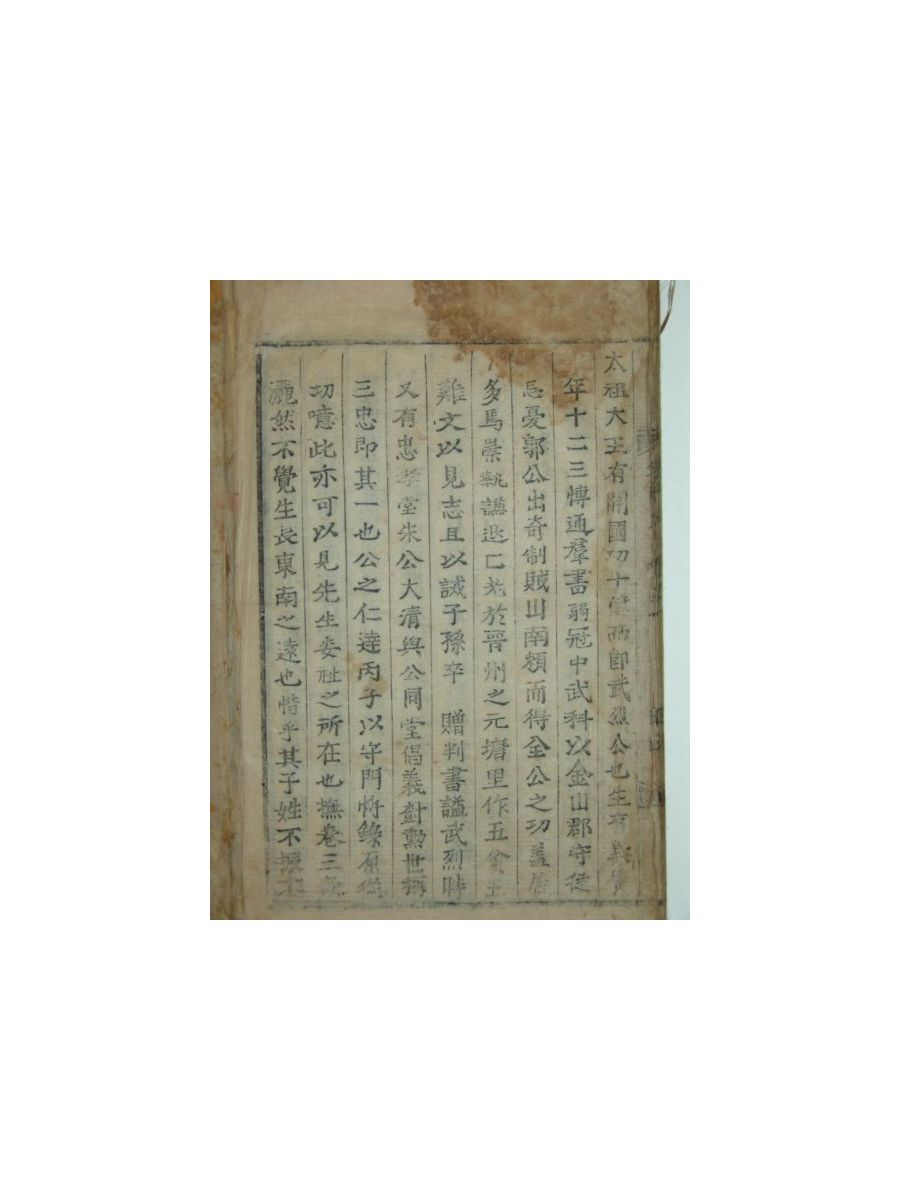 太祖大王有開國功十世而卽武烈公也生有異質
年十二三慱通羣書弱冠中武科以金山郡守從
忘憂郭公出奇制賊山南賴而得全公之功盖居
多焉崇執謙退乙老於晉州之元塘里作五貧五
難文以見志且以誡子孫卒 贈判書謚武烈時
又有忠孝堂朱公大淸與公同堂倡義封勳世稱
三忠卽其一也公之仁達丙子以守門將錄原從
功噫此亦可以見先生委祉之所在也撫卷三歎
灑然不覺生長東南之遠也惜乎其子姓不振不